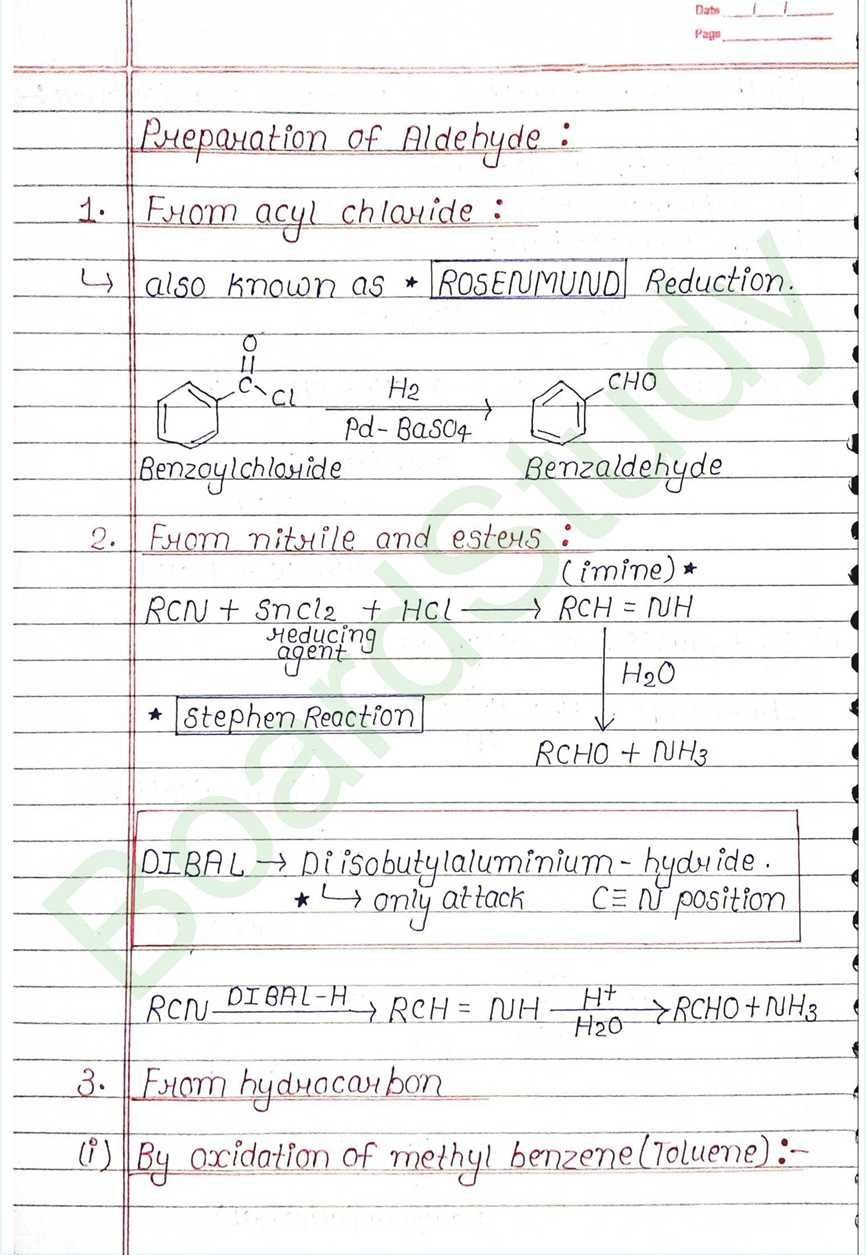 Date / /
Page
Preparation of Aldehyde :
1. From acyl chloride :
↳ also known as ★ ROSENMUND Reduction.
O
C Cl H2 CHO
Pd - BaSO4
Benzoylchloride Benzaldehyde
2. From nitrile and esters :
(imine) ★
RCN + SnCl2 + HCl ⟶ RCH = NH
reducing
agent
H2O
★ Stephen Reaction
RCHO + NH3
DIBAL → Diisobutylaluminium - hydride.
★ ↳ only attack C≡N position
RCN DIBAL-H → RCH = NH H+ → RCHO + NH3
H2O
3. From hydrocarbon
(i) By oxidation of methyl benzene (Toluene) :-
BoardStudy